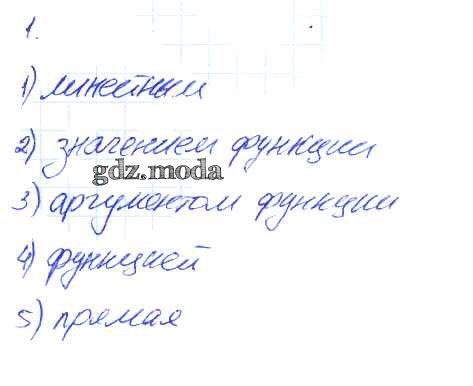 1.
1) линейным
2) значением функции
gdz.moda
3) аргументом функции
4) функцией
5) прямая